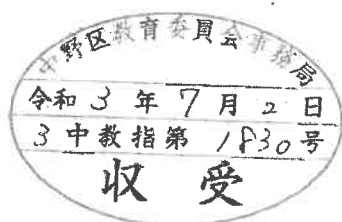 中野区教育委員会事務局
令和3年7月2日
3中教指第1830号
収受